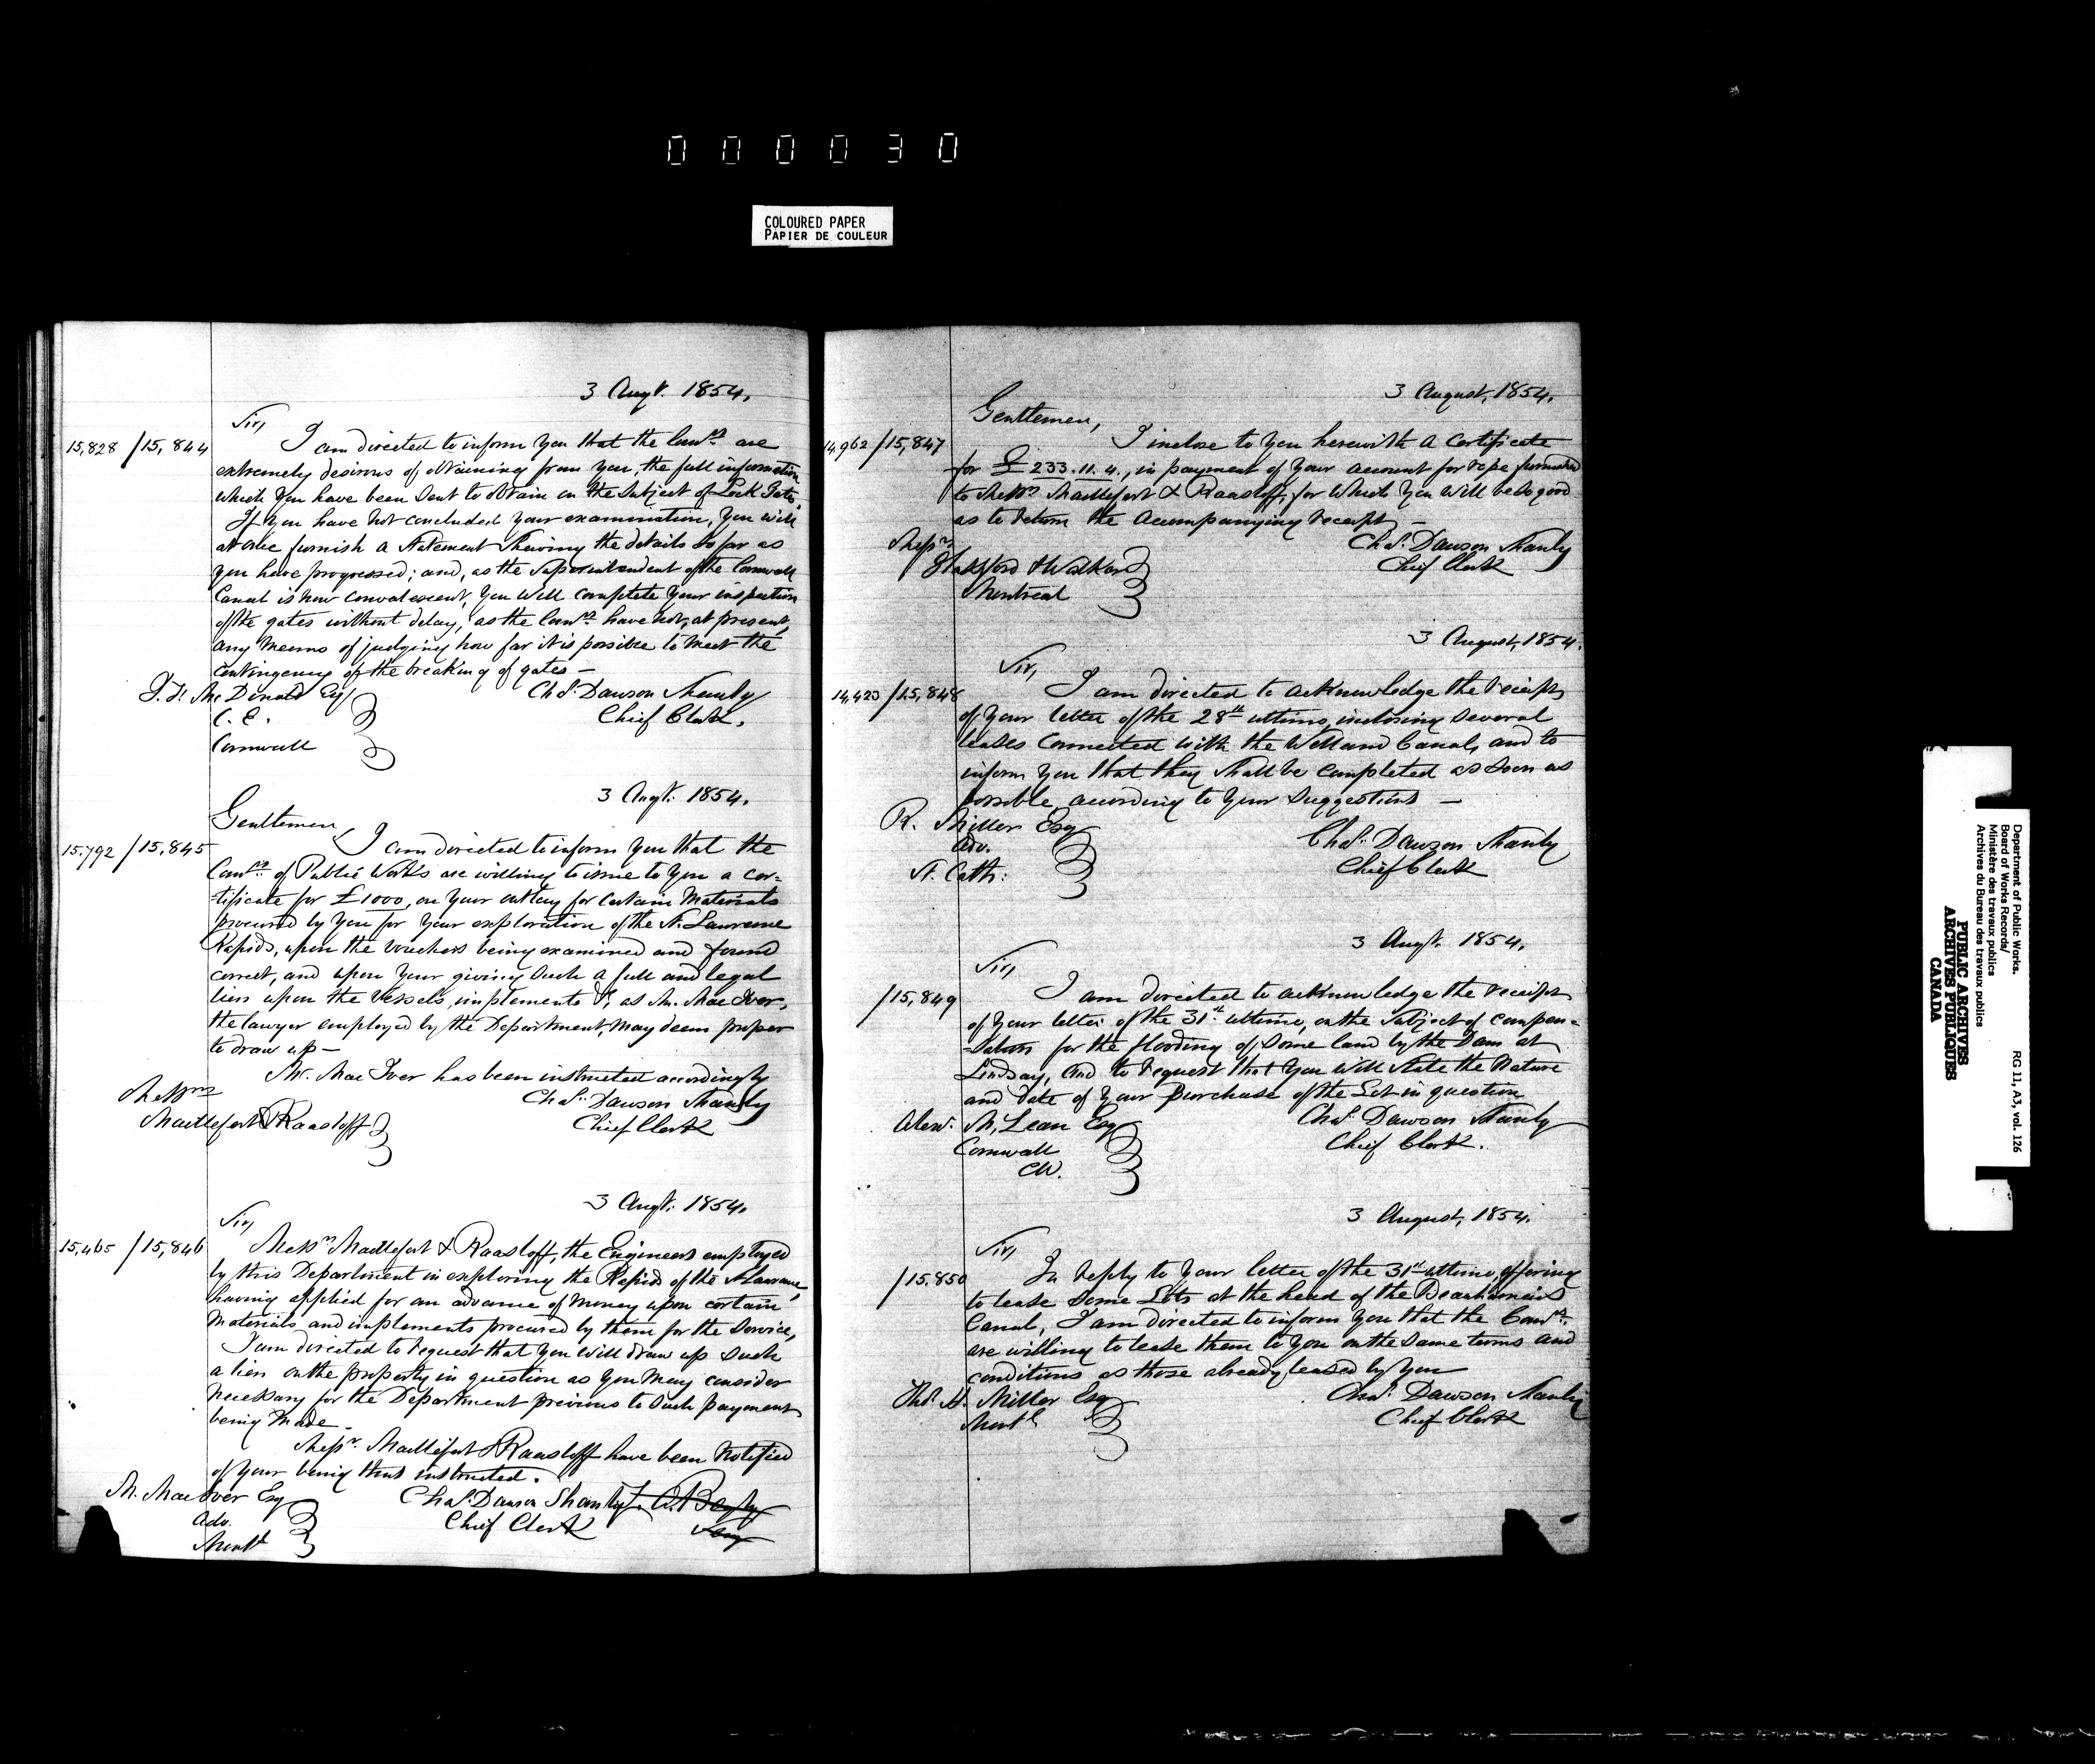 000030
COLOURED PAPER
PAPIER DE COULEUR
3 Augt. 1854.
Sir,
15,828 /15,844 I am directed to inform you that the Comrs. are
extremely desirous of obtaining from you, the full information
which you have been sent to obtain on the subject of Lock Gates.
If you have not concluded your examination, you will
at once furnish a statement shewing the details so far as
you have progressed; and, as the Superintendent of the Cornwall
Canal is now convalescent, you will complete your inspection
of the gates without delay, as the Comrs. have not, at present,
any means of judging how far it is possible to meet the
contingency of the breaking of gates —
Mc Donald Esq Chas. Dawson Shanly
C. E. Chief Clerk.
Cornwall
3 Augt. 1854.
Gentlemen,
15,792 /15,845 I am directed to inform you that the
Comrs. of Public Works are willing to issue to you a cer=
=tificate for £1000, on your outlay for certain Materials
procured by you for your exploration of the St. Lawrence
Rapids, upon the vouchers being examined and found
correct, and upon your giving such a full and legal
lien upon the vessels, implements &c. as Mr. Mac Iver,
the lawyer employed by the Department, may deem proper
to draw up —
Mr. Mac Iver has been instructed accordingly
Messrs Chas. Dawson Shanly
Maillefert & Raasloff Chief Clerk
3 Augt. 1854.
Sir,
15,465 /15,846 Messrs. Maillefert & Raasloff, the Engineers employed
by this Department in exploring the Rapids of the St. Lawrence,
having applied for an advance of money upon certain
Materials and implements procured by them for the service,
I am directed to request that you will draw up such
a lien on the property in question as you may consider
necessary for the Department previous to such payment
being made —
Messrs. Maillefert & Raasloff have been notified
of your being thus instructed.
M. Mac Iver Esq Chas. Dawson Shanly
Adv. Chief Clerk
Montl
3 August, 1854.
Gentlemen,
14,962 /15,847 I inclose to you herewith a Certificate
for £233.11.4., in payment of your account for rope furnished
to Messrs Maillefert & Raasloff, for which you will be so good
as to return the accompanying receipt —
Messrs. Chas. Dawson Shanly
Chief Clerk
Montreal
3 August, 1854.
Sir,
14,423 /15,848 I am directed to acknowledge the receipt
of your letter of the 28th ultimo, inclosing several
leases connected with the Welland Canal, and to
inform you that they shall be completed as soon as
possible according to your suggestions —
R. Miller Esq
Adv. Chas. Dawson Shanly
St. Cath: Chief Clerk
3 Augt. 1854.
Sir,
/15,849 I am directed to acknowledge the receipt
of your letter of the 31st. ultimo, on the subject of compen=
=sation for the flooding of some land by the Dam at
Lindsay, and to request that you will state the nature
and date of your purchase of the Lot in question
Alexr. McLean Esq Chas. Dawson Shanly
Cornwall Chief Clerk.
CW.
3 August, 1854.
Sir,
/15,850 In reply to your letter of the 31st ultimo, offering
to lease some Lots at the head of the Beauharnois
Canal, I am directed to inform you that the Comrs.
are willing to lease them to you on the same terms and
conditions as those already leased by you
Miller Esq Chas. Dawson Shanly
Montl Chief Clerk
Department of Public Works. RG 11, A3, vol. 126
Board of Works Records/
Ministère des travaux publics
Archives du Bureau des travaux publics
PUBLIC ARCHIVES
ARCHIVES PUBLIQUES
CANADA